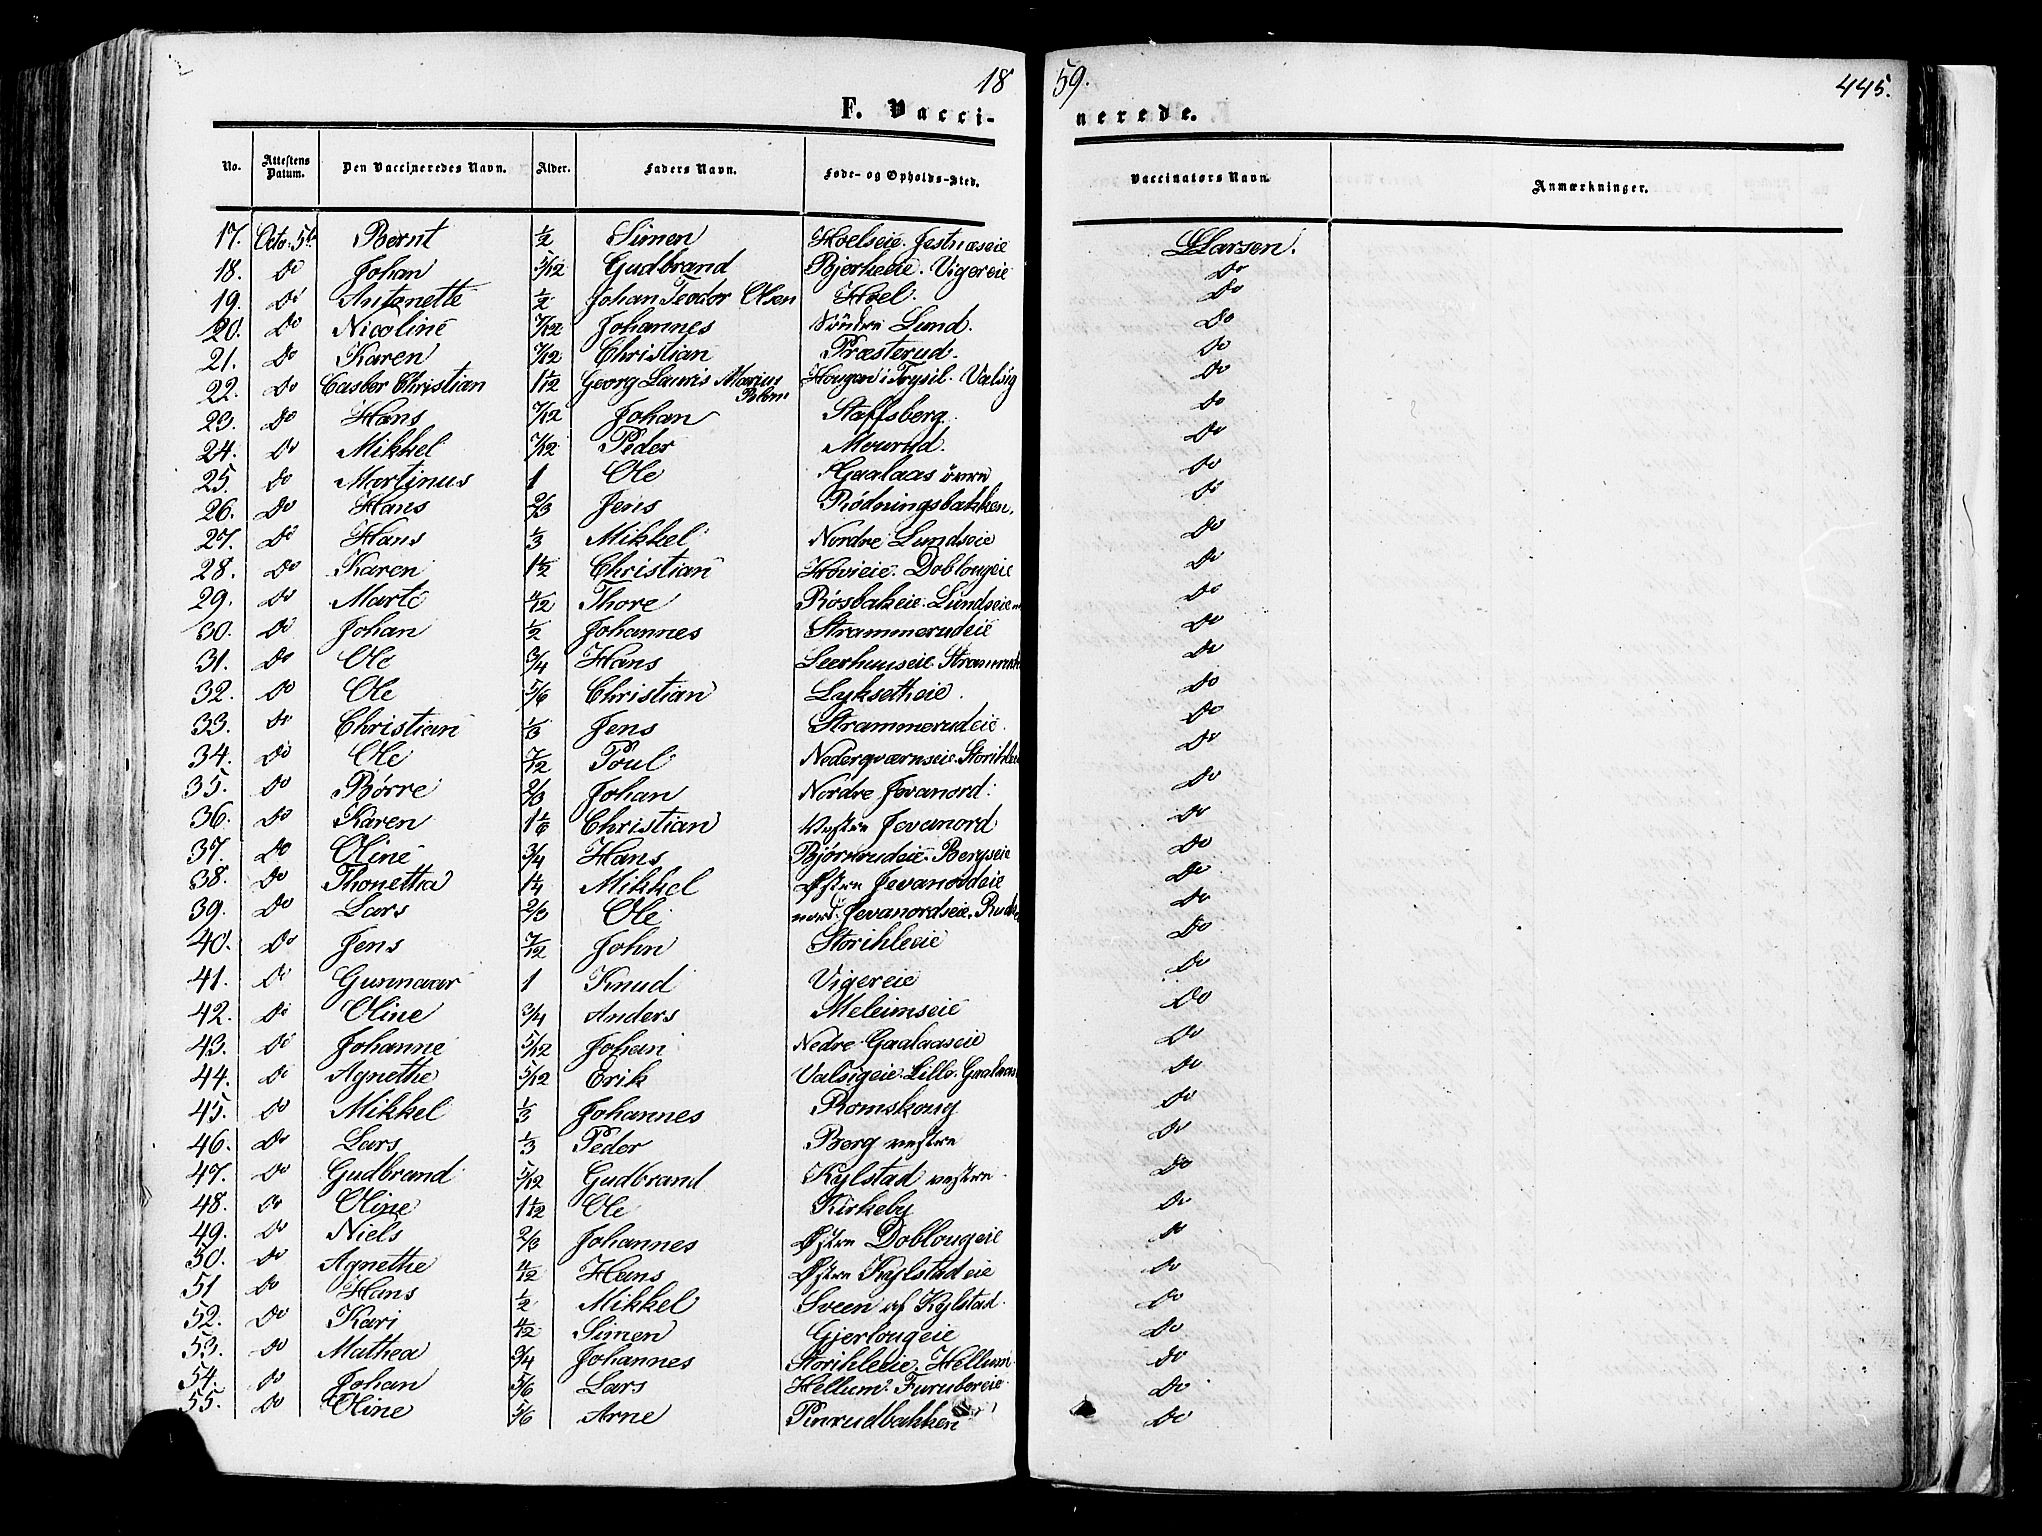 18 59. 445.
F. Vaccinerede.
No. Attestens Datum. Den Vaccineredes Navn. Alder. Faders Navn. Føde- og Opholds-Sted. Vaccinators Navn. Anmærkninger.
17. Octo. 5te Bernt 1/2 Simen Hoelseie. Jestnæseie LLarsen.
18. Do Johan 5/12 Gudbrand Bjerkeeie. Vigereie Do
19. Do Antonette 1/2 Johan Teodor Olsen Hoel. Do
20. Do Nicoline 7/12 Johannes Söndre Lund. Do
21. Do Karen 7/12 Christian Præsterud. Do
22. Do Castor Christian 1 1/12 Georg Lauris Marius Blom Hougen i Trysil. Valsig Do
23. Do Hans 7/12 Johan Staffsberg. Do
24. Do Mikkel 7/12 Peder Mourud. Do
25. Do Martinus 1 Ole Gaalaas övre Do
26. Do Hans 2/3 Jens Rødningsbakken. Do
27. Do Hans 1/3 Mikkel Nordre Lundseie Do
28. Do Karen 1 1/2 Christian Hovieie. Doblougeie Do
29. Do Marte 4/12 Thore Røsbakeie. Lundseie Do
30. Do Johan 1/2 Johannes Strammerudeie Do
31. Do Ole 3/4 Hans Leerhuuseie. Do
32. Do Ole 5/6 Christian Lyksetheie. Do
33. Do Christian 1/3 Jens Strammerudeie. Do
34. Do Ole 7/12 Poul Nederqværnseie. Do
35. Do Børre 2/3 Johan Nordre Jevanord. Do
36. Do Karen 1 1/6 Christian Vestre Jevanord Do
37. Do Oline 3/4 Hans Bjørnrudeie. Bergseie Do
38. Do Thonetha 1 1/4 Mikkel Østre Jevanordeie Do
39. Do Lars 2/3 Ole nord. Jevanordseie. Do
40. Do Jens 7/12 John Storihleeie Do
41. Do Gunnvar 1 Knud Vigereie Do
42. Do Oline 3/4 Anders Meleimseie Do
43. Do Johanne 5/12 Johan Nedre Gaalaaseie Do
44. Do Agnethe 5/12 Erik Valsigeie. Lille. Gaalaas Do
45. Do Mikkel 1/3 Johannes Romskoug Do
46. Do Lars 1/3 Peder Berg vestre Do
47. Do Gudbrand 5/12 Gudbrand Kylstad vestre Do
48. Do Oline 1 1/12 Ole Kirkeby Do
49. Do Niels 2/3 Johannes Østre Doblougeie Do
50. Do Agnethe 4/12 Hans Østre Kylstadeie Do
51 Do Hans 1/2 Mikkel Sveen af Kylstad. Do
52. Do Kari 4/12 Simen Gjerlougeie Do
53. Do Mathea 3/4 Johannes Storihleeie. Hellum. Do
54. Do Johan 5/6 Lars Hellum. Furubereie Do
55. Do Oline 5/6 Arne Pinrudbakken Do